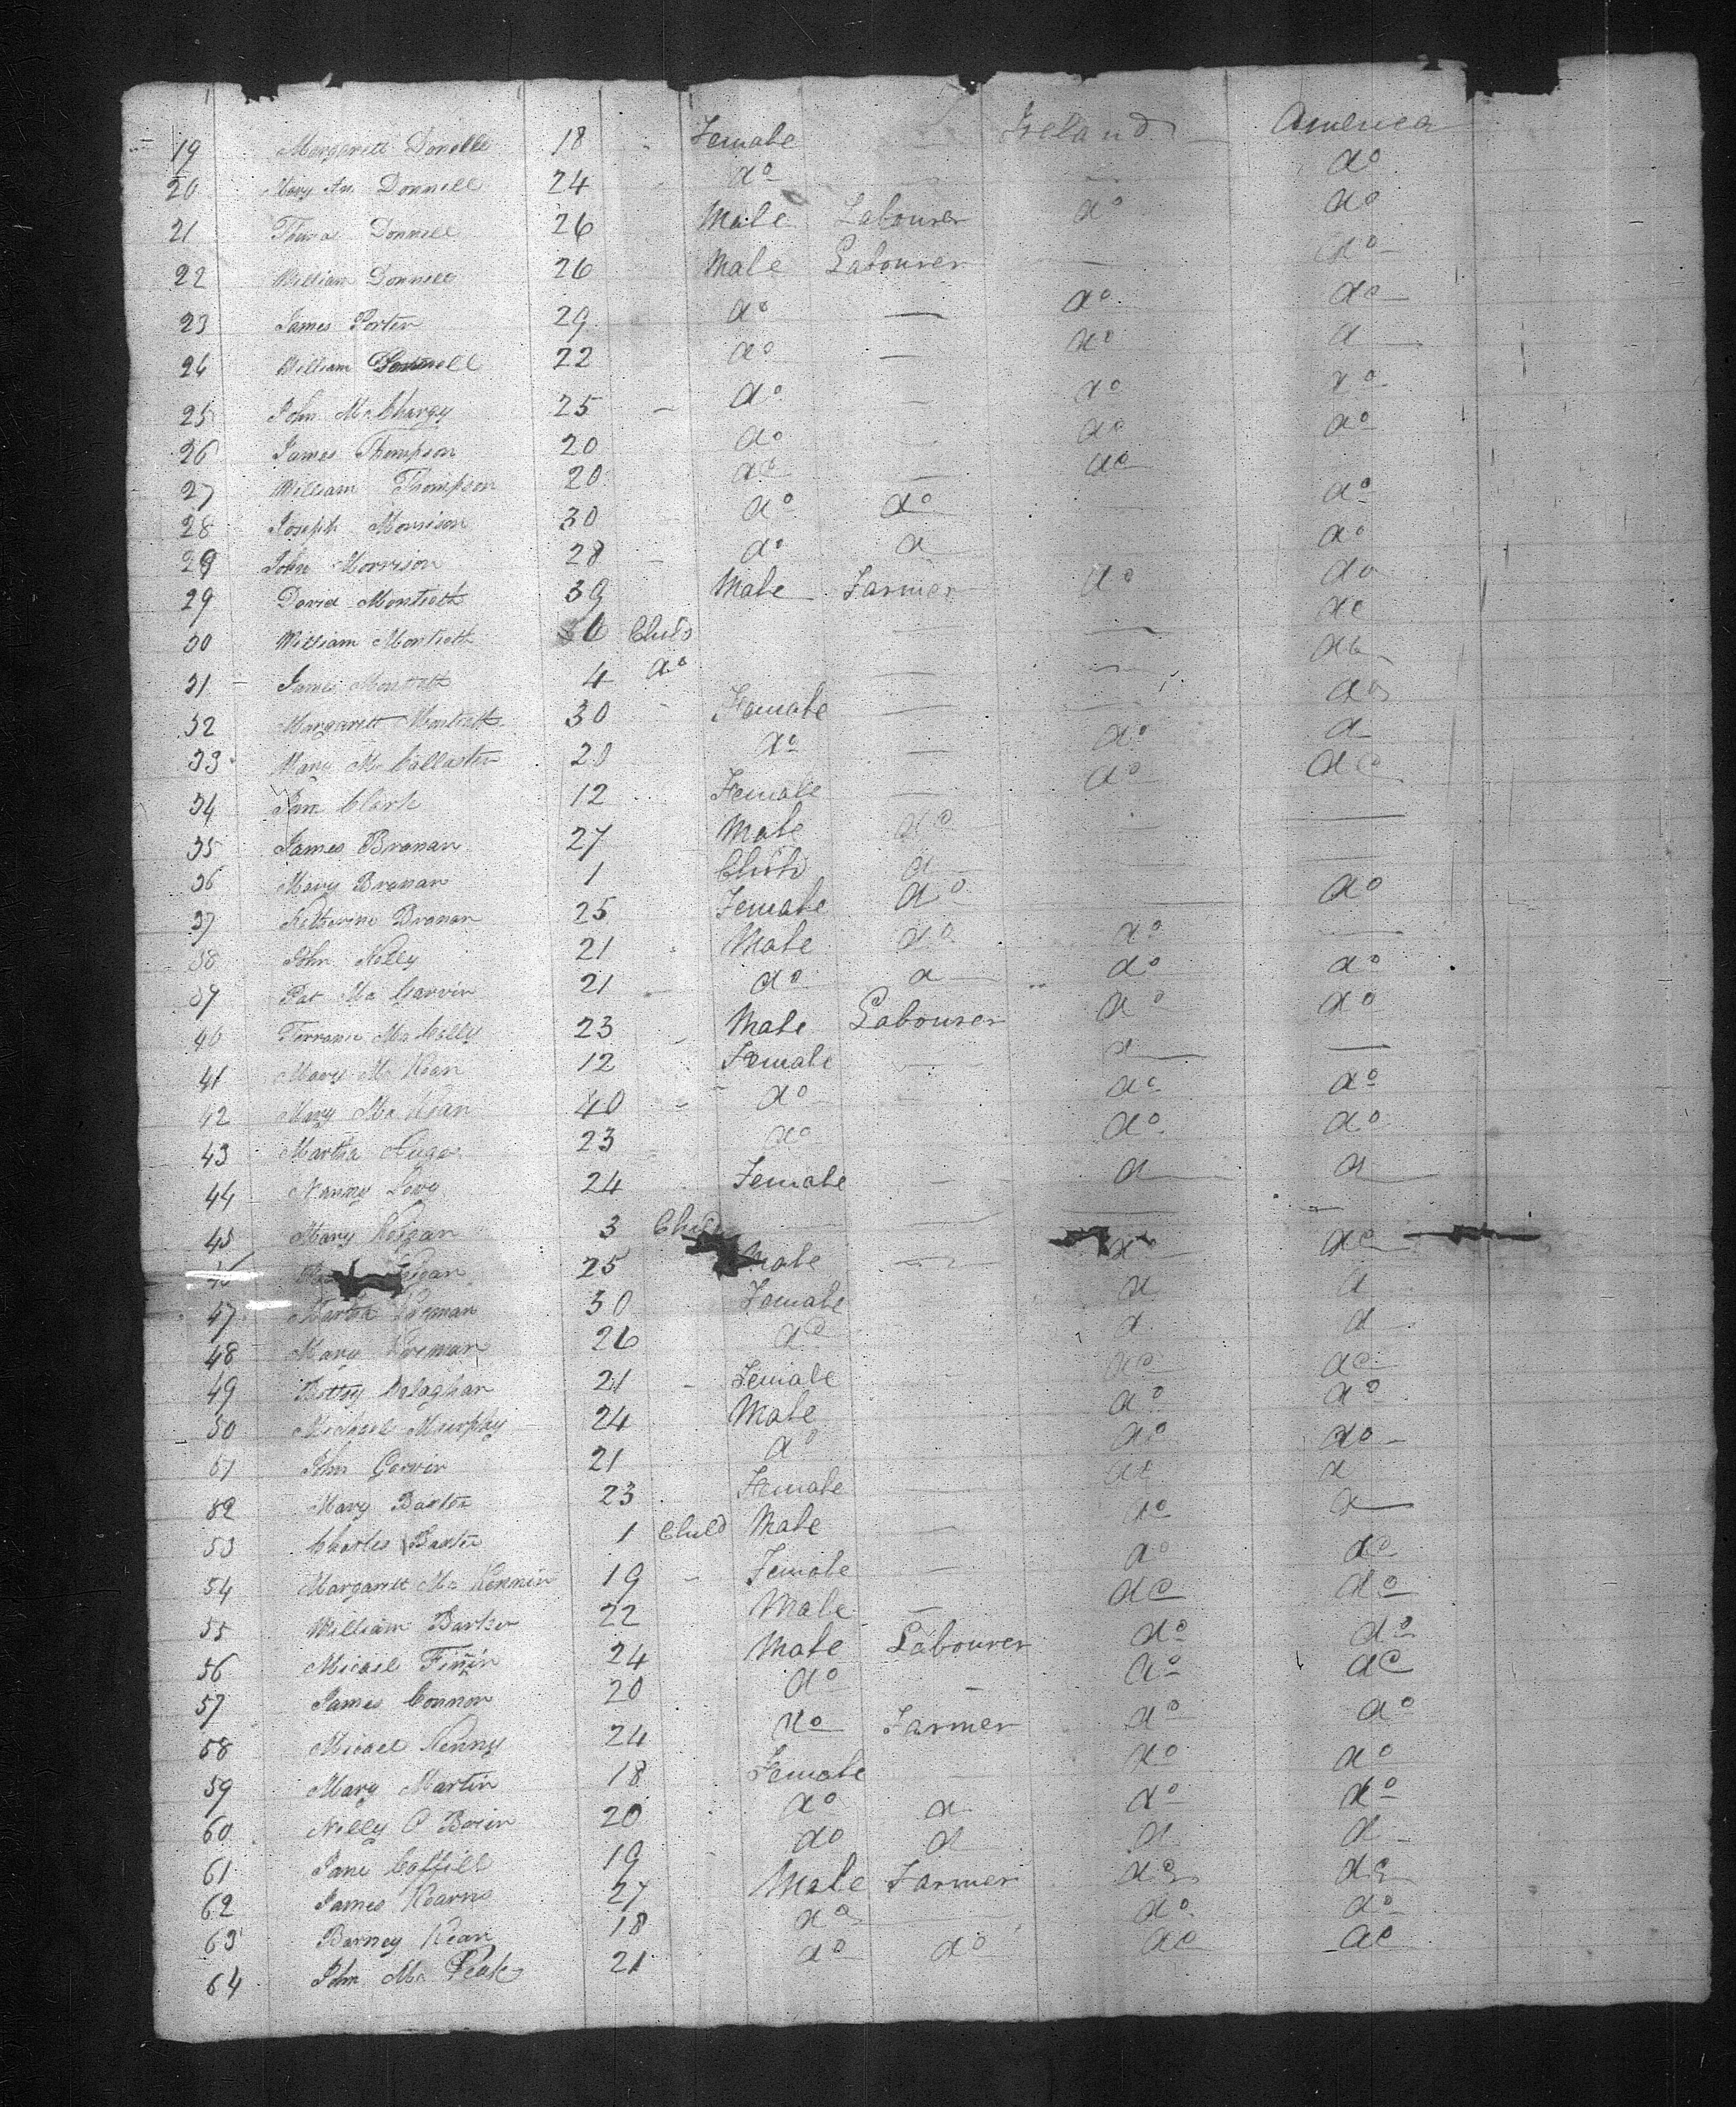 19 Margarett Donelle 18 Female Ireland America
20 Mary An Donnell 24 do do
21 Donnell 26 Male Labourer do do
22 William Donnell 26 Male Labourer do
23 James Porter 29 do — do do
24 William 22 do — do d
25 John McChargy 25 do — do do
26 James Thompson 20 do do do
27 William Thompson 20 do — do
28 Joseph Morrison 30 do do do
29 John Morrison 28 do d do
29 David Montieth 39 Male Farmer do do
30 William Montieth 6 Child — — do
31 James Montieth 4 do — — do
32 Margarett Montieth 30 Female — — do
33 Mary McCallaster 20 do — do d
34 Jane Clark 12 Female — do do
35 James Branan 27 Male do — —
36 Mary Branan 1 Child d — —
37 Katherine Branan 25 Female do — do
38 John Kelly 21 Male do do —
39 Pat McGarvin 21 do d do do
40 23 Male Labourer do do
41 Mary McKean 12 Female — d —
42 Mary McKean 40 do do do
43 Martha 23 do do do
44 Nanny Love 24 Female — d d
45 Mary Keigan 3 Child — — — —
46 25 Male — do do
47 Martha 30 Female d d
48 Mary 26 do d d
49 Bettsy Kalaghan 21 Female do do
50 Michael Murphy 24 Male do do
51 John Garvin 21 do do do
52 Mary Baxter 23 Female — do d
53 Charles Baxter 1 Child Male — do d
54 Margarett McKennin 19 Female — do do
55 William Barker 22 Male — do do
56 Micael Finin 24 Male Labourer do do
57 James Connor 20 do — do do
58 Micael Kenny 24 do Farmer do do
59 Mary Martin 18 Female — do do
60 Nelly O Brien 20 do d do do
61 Jane 19 do d d d
62 James Kearns 27 Male Farmer do do
63 Barney Kean 18 do — do do
64 John McPeak 21 do do do do